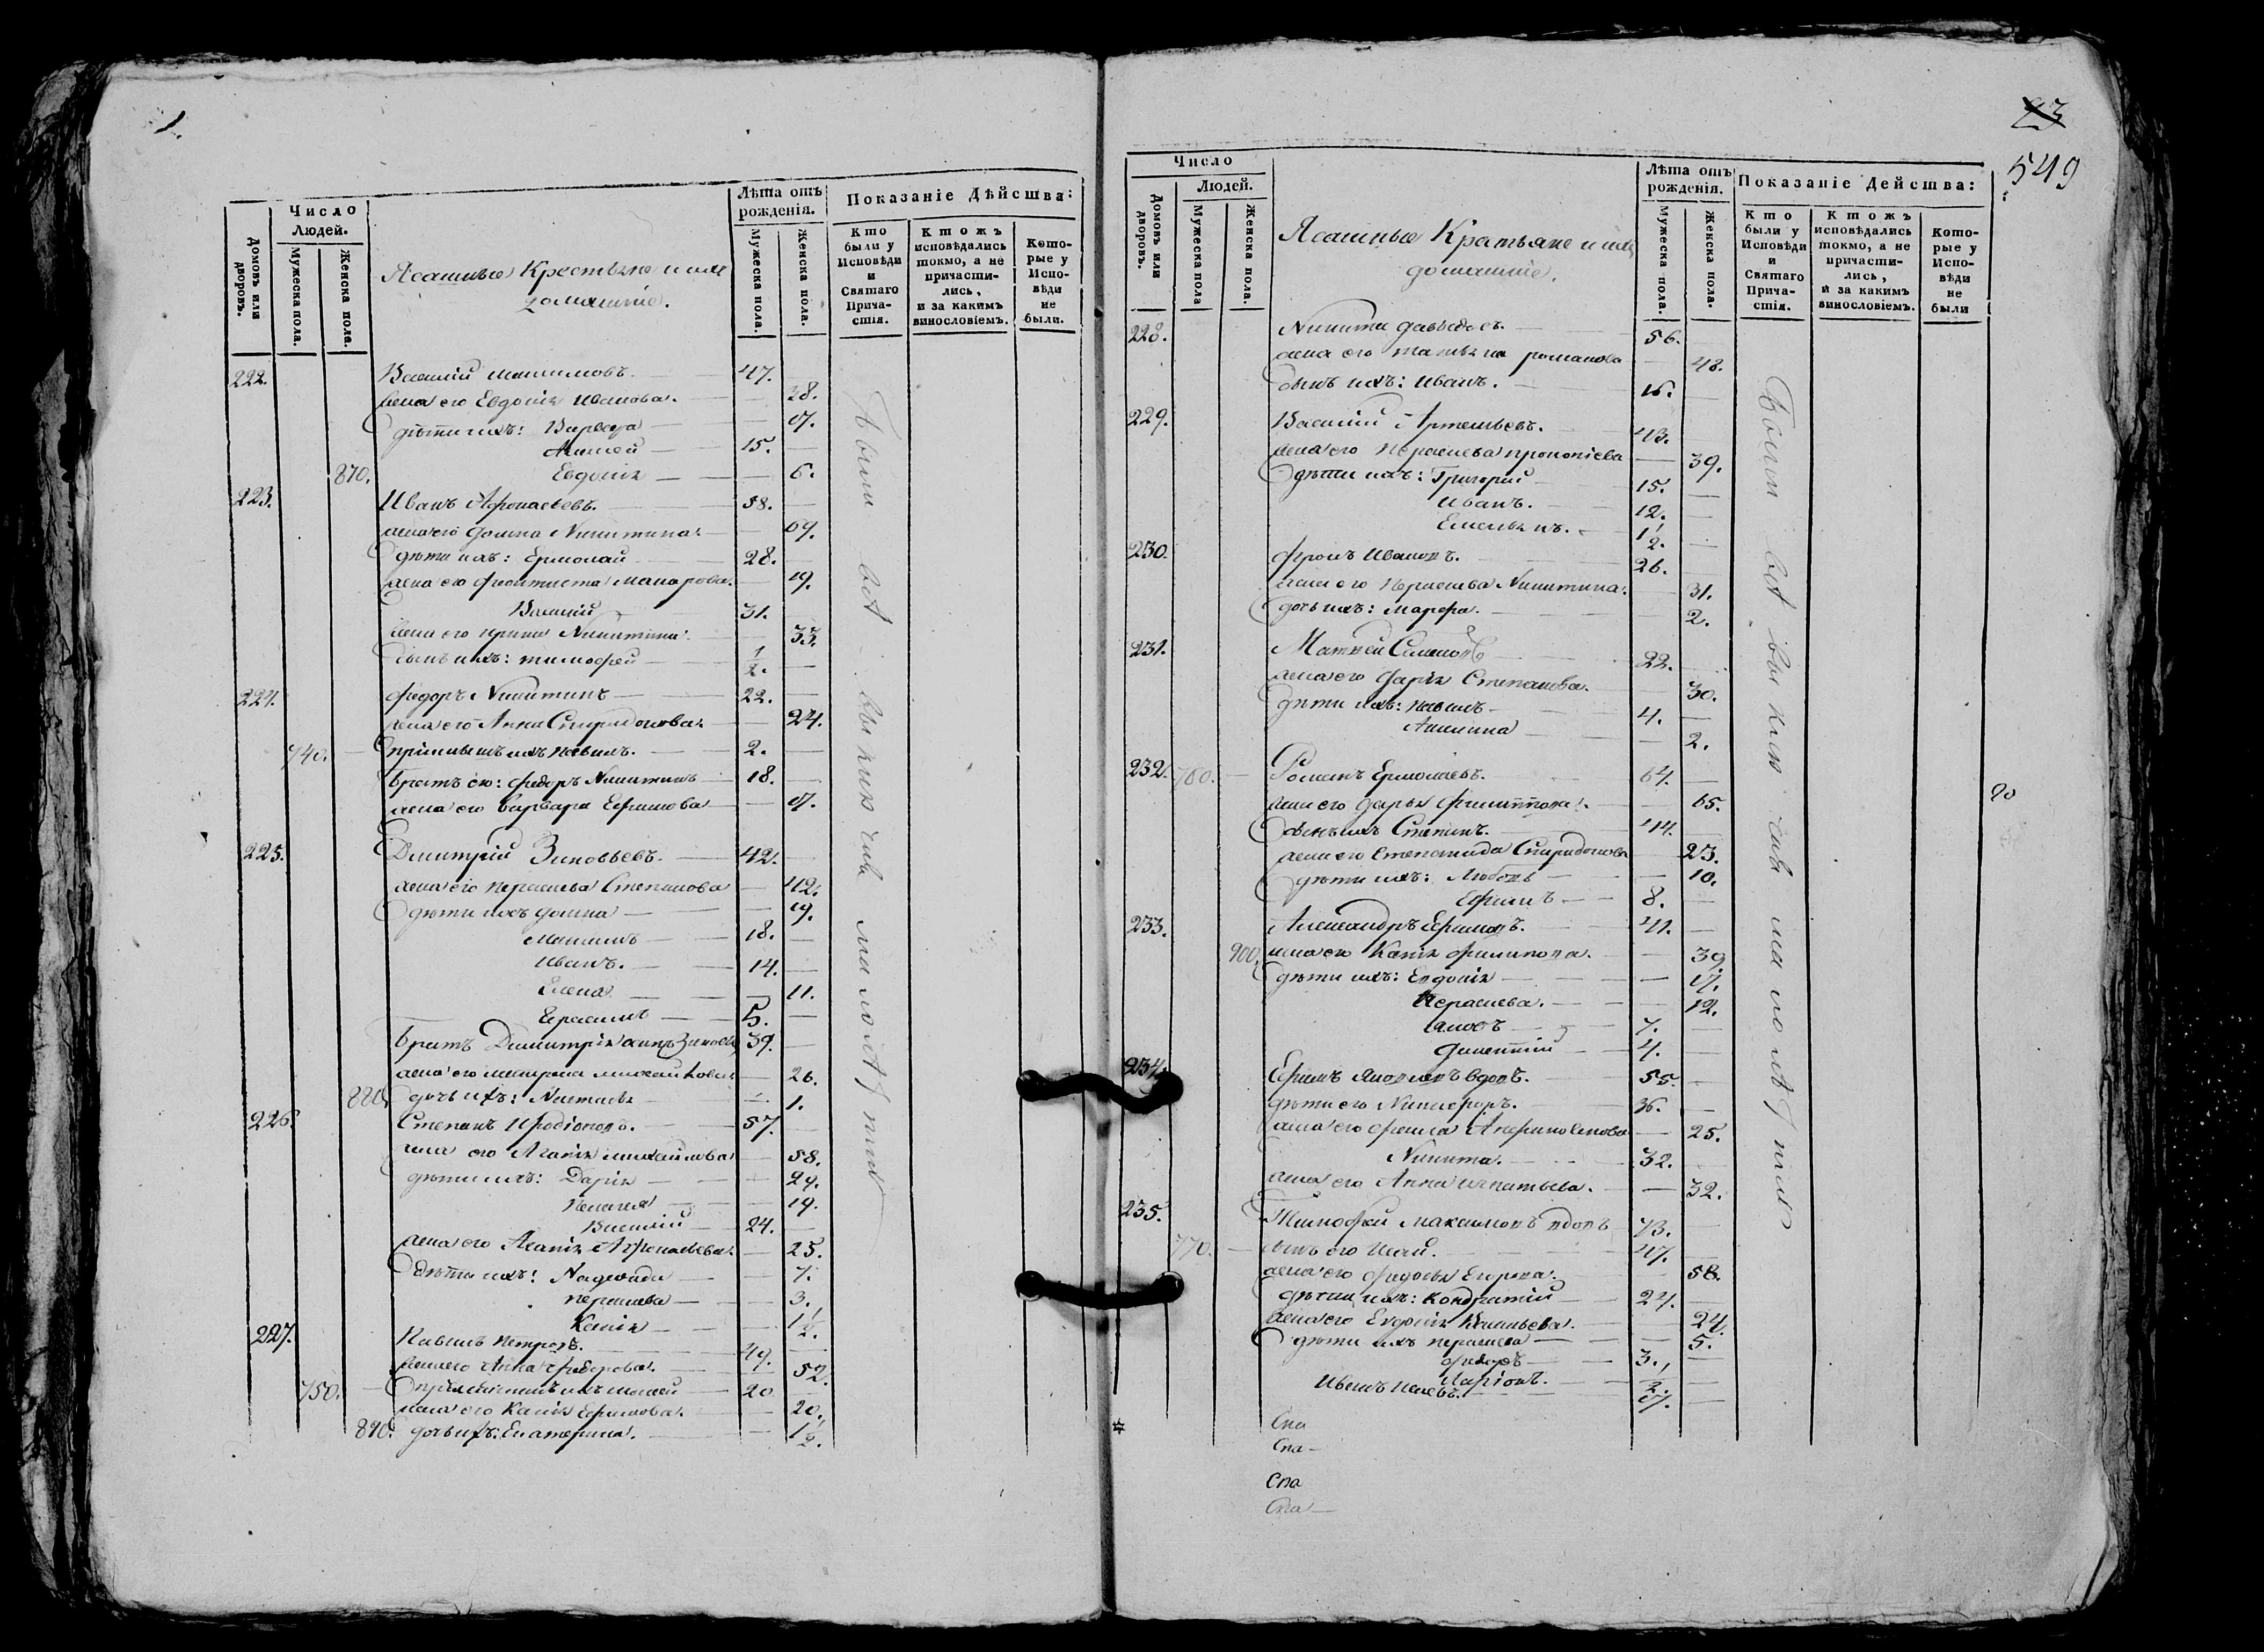 1.
Число
Людей.
Домовъ или дворовъ.
Мужеска пола.
Женска пола.
Ясашные Крестьяне и ихъ
домашніе.
Лѣта отъ
рожденія.
Мужеска пола.
Женска пола.
Показаніе Дѣйства:
Кто были у Исповѣди и Святаго Причастія.
Ктожъ исповѣдались токмо, а не причастились, и за какимъ винословіемъ.
Которые у Исповѣди не были.
222. Василій Максимовъ. 47.
жена его Евдокія Иванова. 38.
дѣти ихъ: Варвара 17.
15.
870. Евдокія 6.
223. Иванъ Афонасьевъ. 58.
жена его Домна Никитина. 69.
дѣти ихъ: Ермолай 28.
жена его Феоктиста Макарова. 19.
Василій 31.
жена его Ирина Никитина. 33.
сынъ ихъ: Тимофей 1/2.
224. Федоръ Никитинъ 22.
жена его Анна Спиридонова. 24.
740. ихъ Павилъ. 2.
братъ его: Федоръ Никитинъ 18.
жена его Варвара Ефимова 17.
225. Димитрій Зиновьевъ. 42.
жена его Параскева Степанова 42.
дѣти ихъ Домна 19.
Максимъ 18.
Иванъ. 14.
Елена 11.
Герасимъ 5.
братъ Димитрія 39.
жена его Матрона Михайлова 26.
880. дочь ихъ: Настасья 1.
226. Степанъ Иродіоновъ. 57.
жена его Агапія Михайлова 58.
дѣти ихъ: Дарія 29.
Пелагея 19.
Василій 24.
жена его Агапія Афонасьева. 25.
дѣти ихъ: Надежида 7.
Пераскева 3.
Капія 1 1/2.
227. Павилъ Петровъ. 49.
жена его Анна Федорова. 52.
750. 20
жена его Капія Ефимова. 20.
890. дочь ихъ: Екатерина. 1 1/2.
Были всѣ выкиючаи малолѣтнихъ
23
549
Число
Людей.
Домовъ или дворовъ.
Мужеска пола
Женска пола.
Ясашные Кратьяне и ихъ
домашніе.
Лѣта отъ
рожденія.
Мужеска пола.
Женска пола.
Показаніе Действа:
Кто были у Исповѣди и Святаго Причастія.
Ктожъ исповѣдались токмо, а не причастились, и за какимъ винословіемъ.
Которые у Исповѣди не были
228. Никита Давыдовъ. 56.
жена его Татьяна Романова 48.
сынъ ихъ: Иванъ. 16.
229. Василій Артемьевъ. 43.
жена его Пераскева Прокопіева 39.
дѣти ихъ: Григорій 15.
Иванъ. 12.
Емельянъ. 1 1/2.
230. Фролъ Ивановъ. 26.
жена его Пераскева Никитина. 31.
дочь ихъ: Марфа. 2.
231. Матвей Симоновъ 22.
жена его Дарія Степанова. 30.
дѣти ихъ: Павилъ 4.
Акилина 2.
232. 760. Романъ Ермолаевъ. 64.
жена его Дарья Филиппова. 65.
сынъ ихъ Степанъ. 44.
жена его Степанида Спиридонова 23.
дѣти ихъ: Любовь 10.
Ефимъ 8.
233. Александръ Ефимовъ. 41.
900. жена его Капія Филипова. 39
дѣти ихъ: Евдокія 17.
Пераскева. 12.
Яковъ 7.
4.
234. Ефимъ Яковлевъ вдовъ. 55.
дѣти его Никифоръ. 36.
жена его Фекла 25.
Никита. 32.
жена его Анна Игнатьева. 32.
235. Тимофей Максимовъ вдовъ 73.
770. сынъ его Исай. 47.
жена его Федосья Егорова. 58.
дѣти ихъ: Кондратій 24.
жена его Евдокія Васильева. 24.
дѣти ихъ Пераскева 5.
Федоръ 3.
Ларіонъ. 1/2.
Иванъ Исаевъ. 17.
Были всѣ выкиючаи малолѣтнихъ
20
Спа
Спа
Спа
Спа